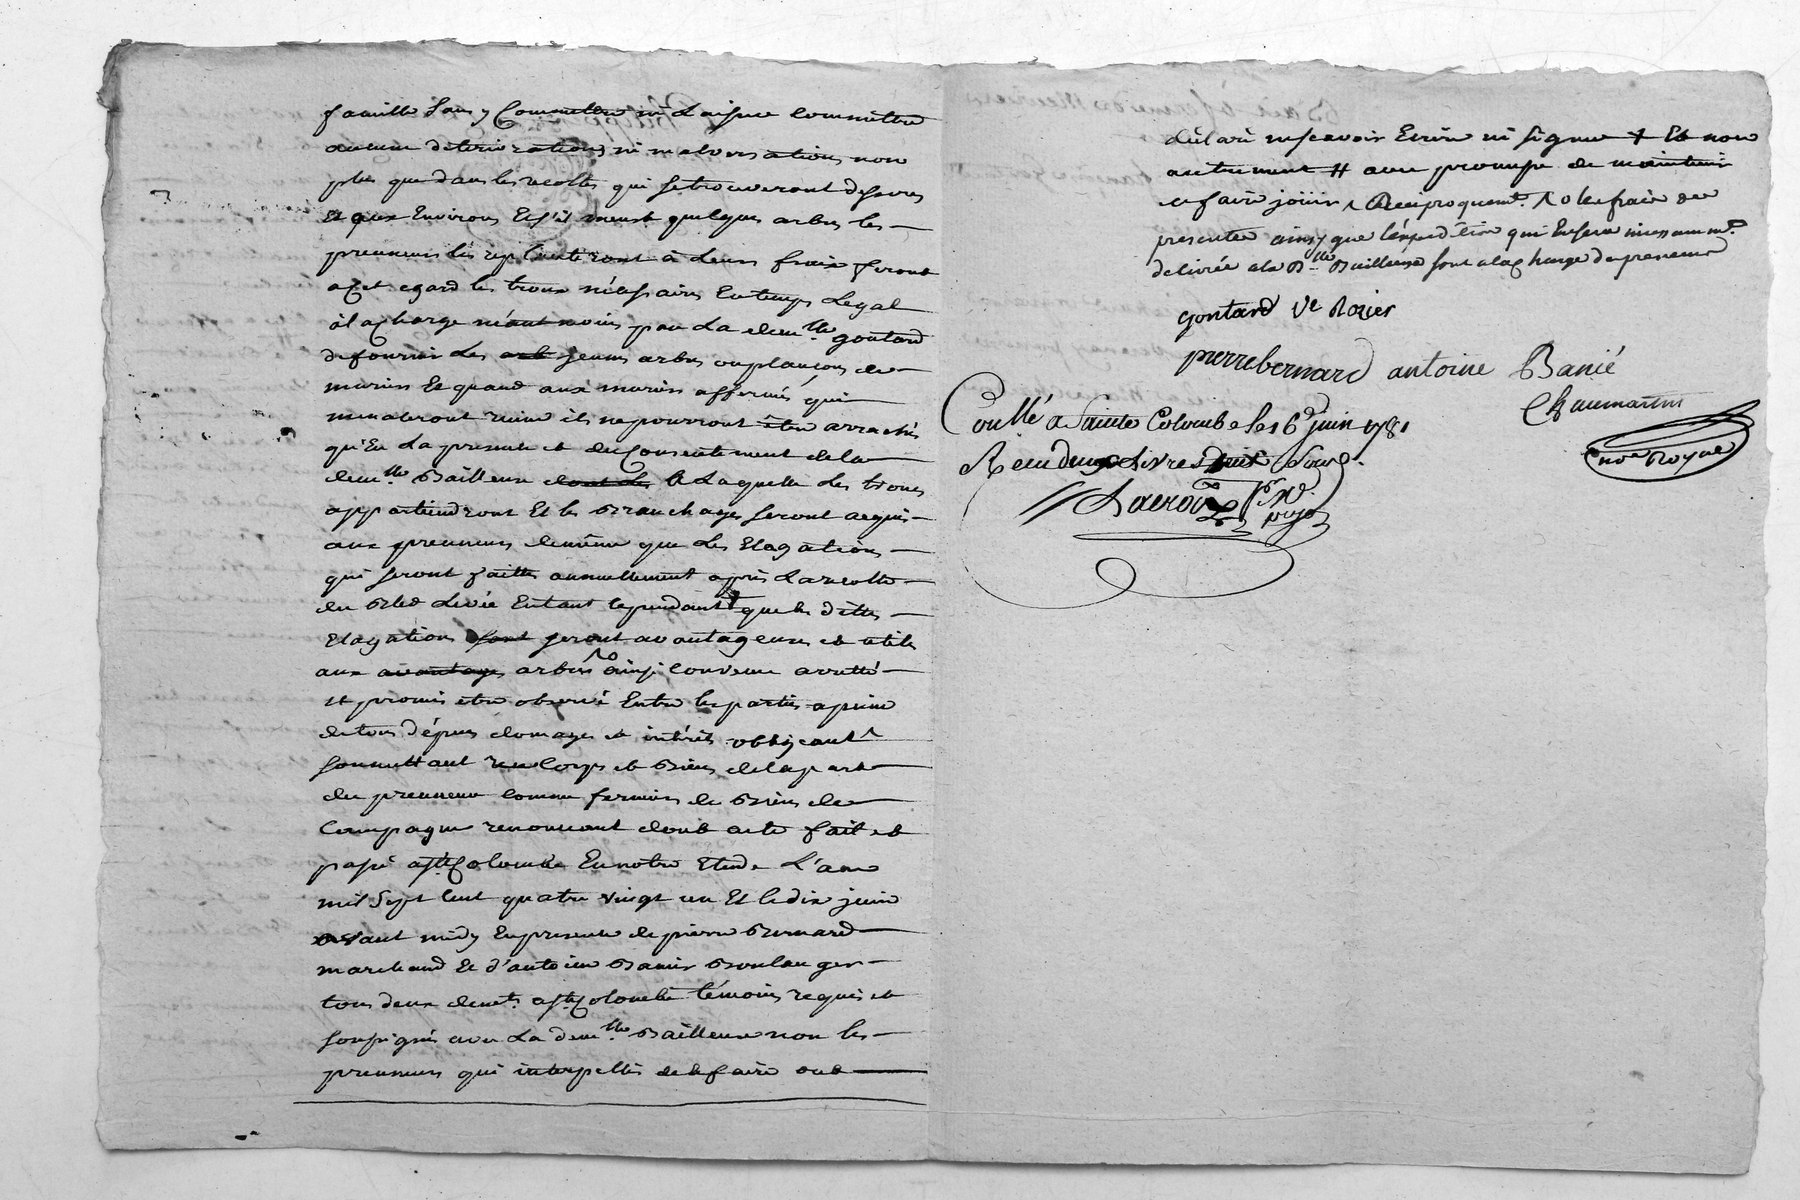 famille sans y Commettre ni Laisser commettre
aucune déteriorations ni malversations non
plus que dans les recoltes qui se trouveront dessous
Et aux Environs Et s'il meurt quelques arbres les
preneurs les replanteront à Leurs fraix feront
a cet egard les troux nécéssaires En temps Legal
à la charge néant moins par La dem.lle gontard
de fournir Les arb jeunes arbres ou plançons de
muriers Et quand aux muriers affermés qui
menaceront ruine ils ne pourront être arrachés
qu'En La presence et du Consentement de la
dem.lle Bailleuse dont Les A Laquelle Les troncs
appartiendront Et les Branchages seront acquis
aux preneurs de même que Les Elagations
qui seront faittes annuellement après La recolte
du Bled Levée Entant cependant que les dittes
Elagations sont seront avantageuses et utiles
aux avantages arbres ainsi convenu arretté
et promis être observé Entre les parties a peine
de tous dépens domages et intérêts obligeant
soummettant leurs Corps et Biens de la part
du preneur comme fermiers de Biens de
Campagne renonceant dont acte fait et
passé a Ste Colombe En notre Etude L'an
mil Sept Cent quatre vingt un Et le dix juin
avant midy En presence de pierre Bernard
marchand Et d'antoine Banier Boulanger
tous deux dem.t a Ste Colombe témoins requis et
soussignés avec La dem.lle Bailleuse non les
preneurs qui interpellés de le faire ont
déclaré ne scavoir Ecrire ni signer + Et non
autrement # avec promesse de maintenir
et faire jouir Reciproquem.t les fraix des
presentes ainsy que l'éxpedition qui En sera incessamm.t
delivrée a la D.lle Bailleuse sont a la charge des preneurs
gontard Ve Rozier
pierre bernard antoine Banié
Chaumartin
no.re Royal
Contllé a Sainte Colombe le 16 juin 1781
Recu deux Livres huit Sous.
Lacroix